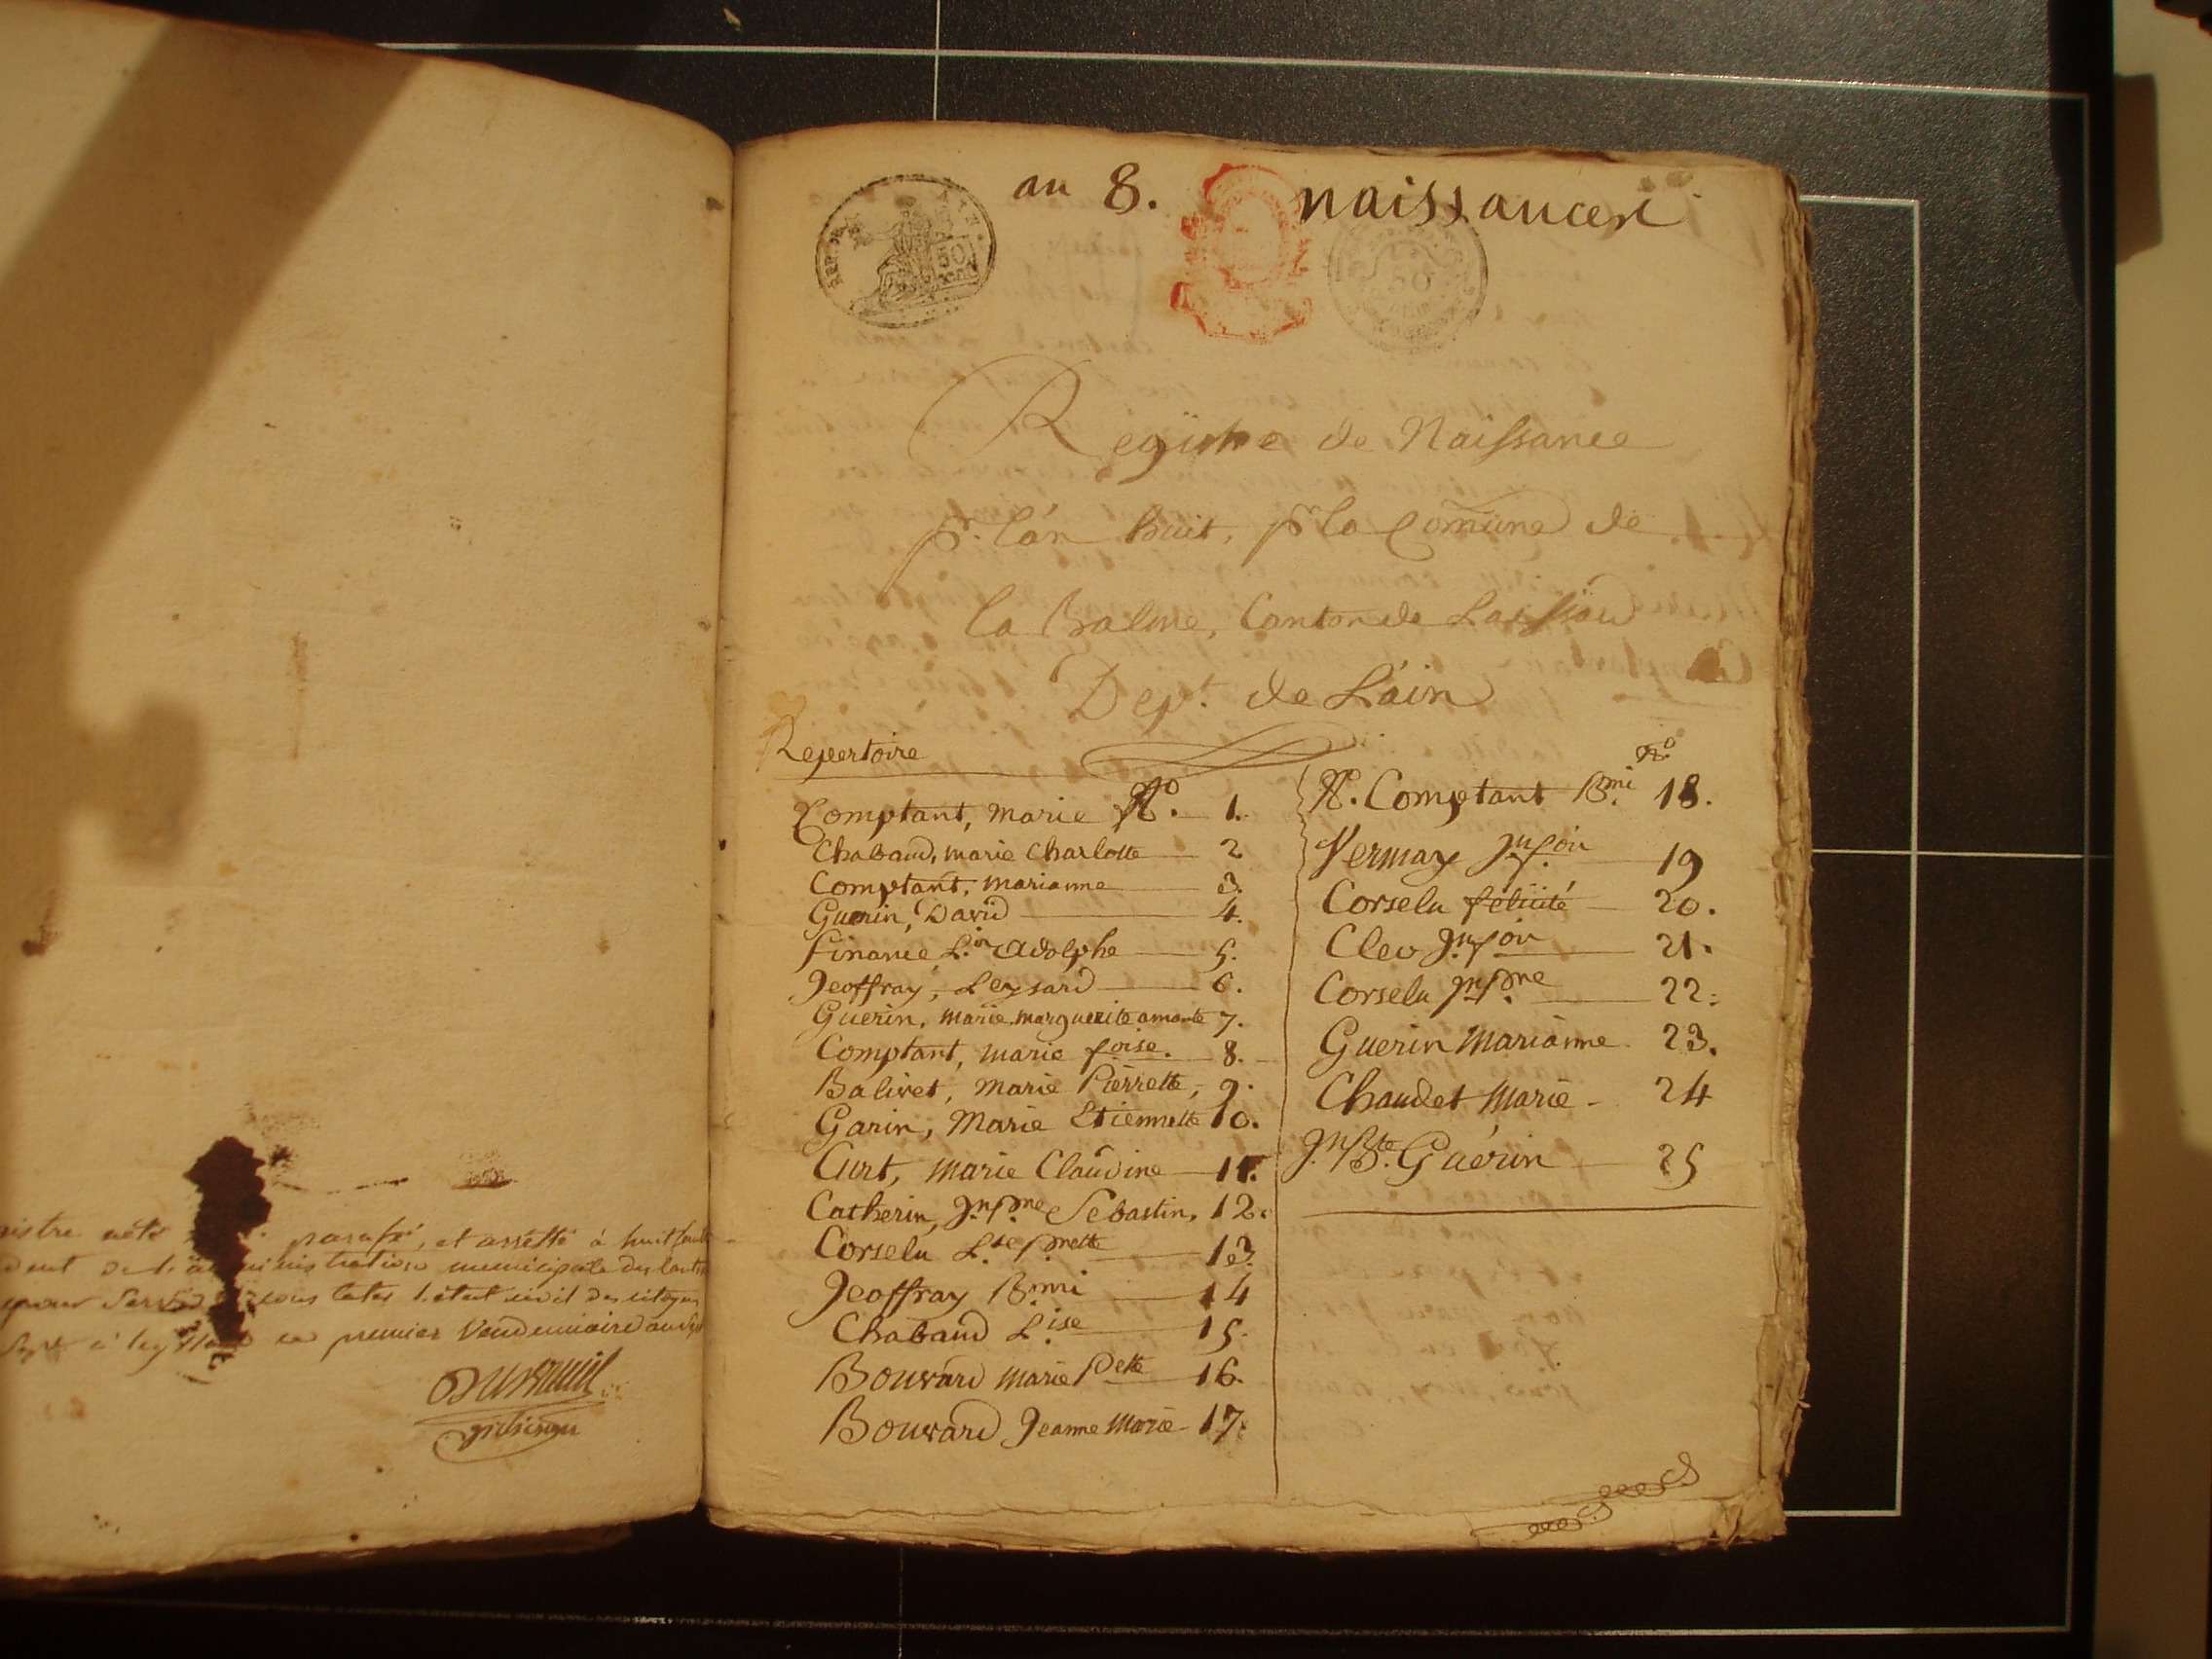 parafé, et arretté à huit
municipale du
l'état civil des citoyens
premier Vendemiaire an
an 8. naissances
REP.
50
Registre de Naissance
pr. l'an huit, pr la Comune de
la Balme, Canton de
Dept. de L'ain
Repertoire
Comptant, marie No. 1.
Chabaud, marie Charlotte 2
Comptant, marianne 3.
Guerin, David 4.
Adolphe 5.
Jeoffray, Leysard 6.
Guerin, marie, marguerite amante 7.
Comptant, marie foise. 8.
Balivet, marie Pierrette, 9.
Garin, Marie Etiennette 10.
Curt, marie Claudine 11.
Catherin, Jn Pre Sebastin, 12.
Corselu L.se P.rette 13.
Jeoffray B.mi 14
Chabaud L.ise 15.
Bouvard marie Pette 16.
Bouvard Jeanne Marie 17.
No
No. Comptant B.mi 18.
Vermay Jn foii 19
Corselu félicité 20.
Cleo Jn foii 21.
Corselu Jn Pre 22.
Guerin Marianne 23.
Chaudet Marie 24
Jn Bte. Guérin 25